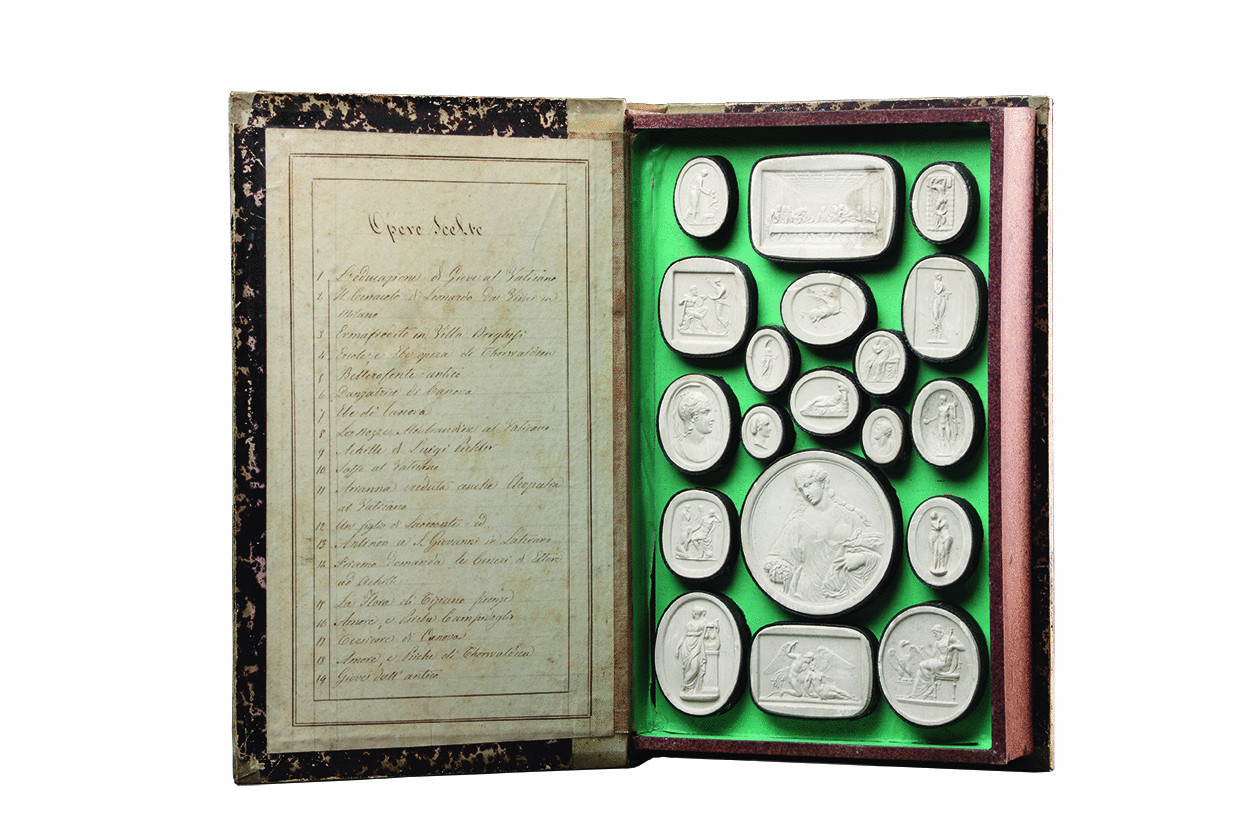 Opere Scelte
1 L'educazione di Giove al Vaticano
2 Il Cenacolo di Leonardo da Vinci in
Milano
3 Ermafrodito in Villa Borghesi
4 Ercole, e Ebe opera di Thorvaldsen
5 Bellerofonte antico
6 Danzatrice di Canova
7 Ebe di Canova
8 Le Nozze Aldobrandine al Vaticano
9 Achille di Luigi Pichler
10 Saffo al Vaticano
11 Arianna creduta anche Cleopatra
al Vaticano
12 Un figlio di Laocoonte id
13 Antinoo a S. Giovanni in Laterano
14 Priamo domanda le Ceneri d'Ettore
ad Achille
15 La Flora di Tiziano
16 Amore, e Psiche Campidoglio
17 Tersicore di Canova
18 Amore, e Psiche di Thorvaldsen
19 Giove dall'antico